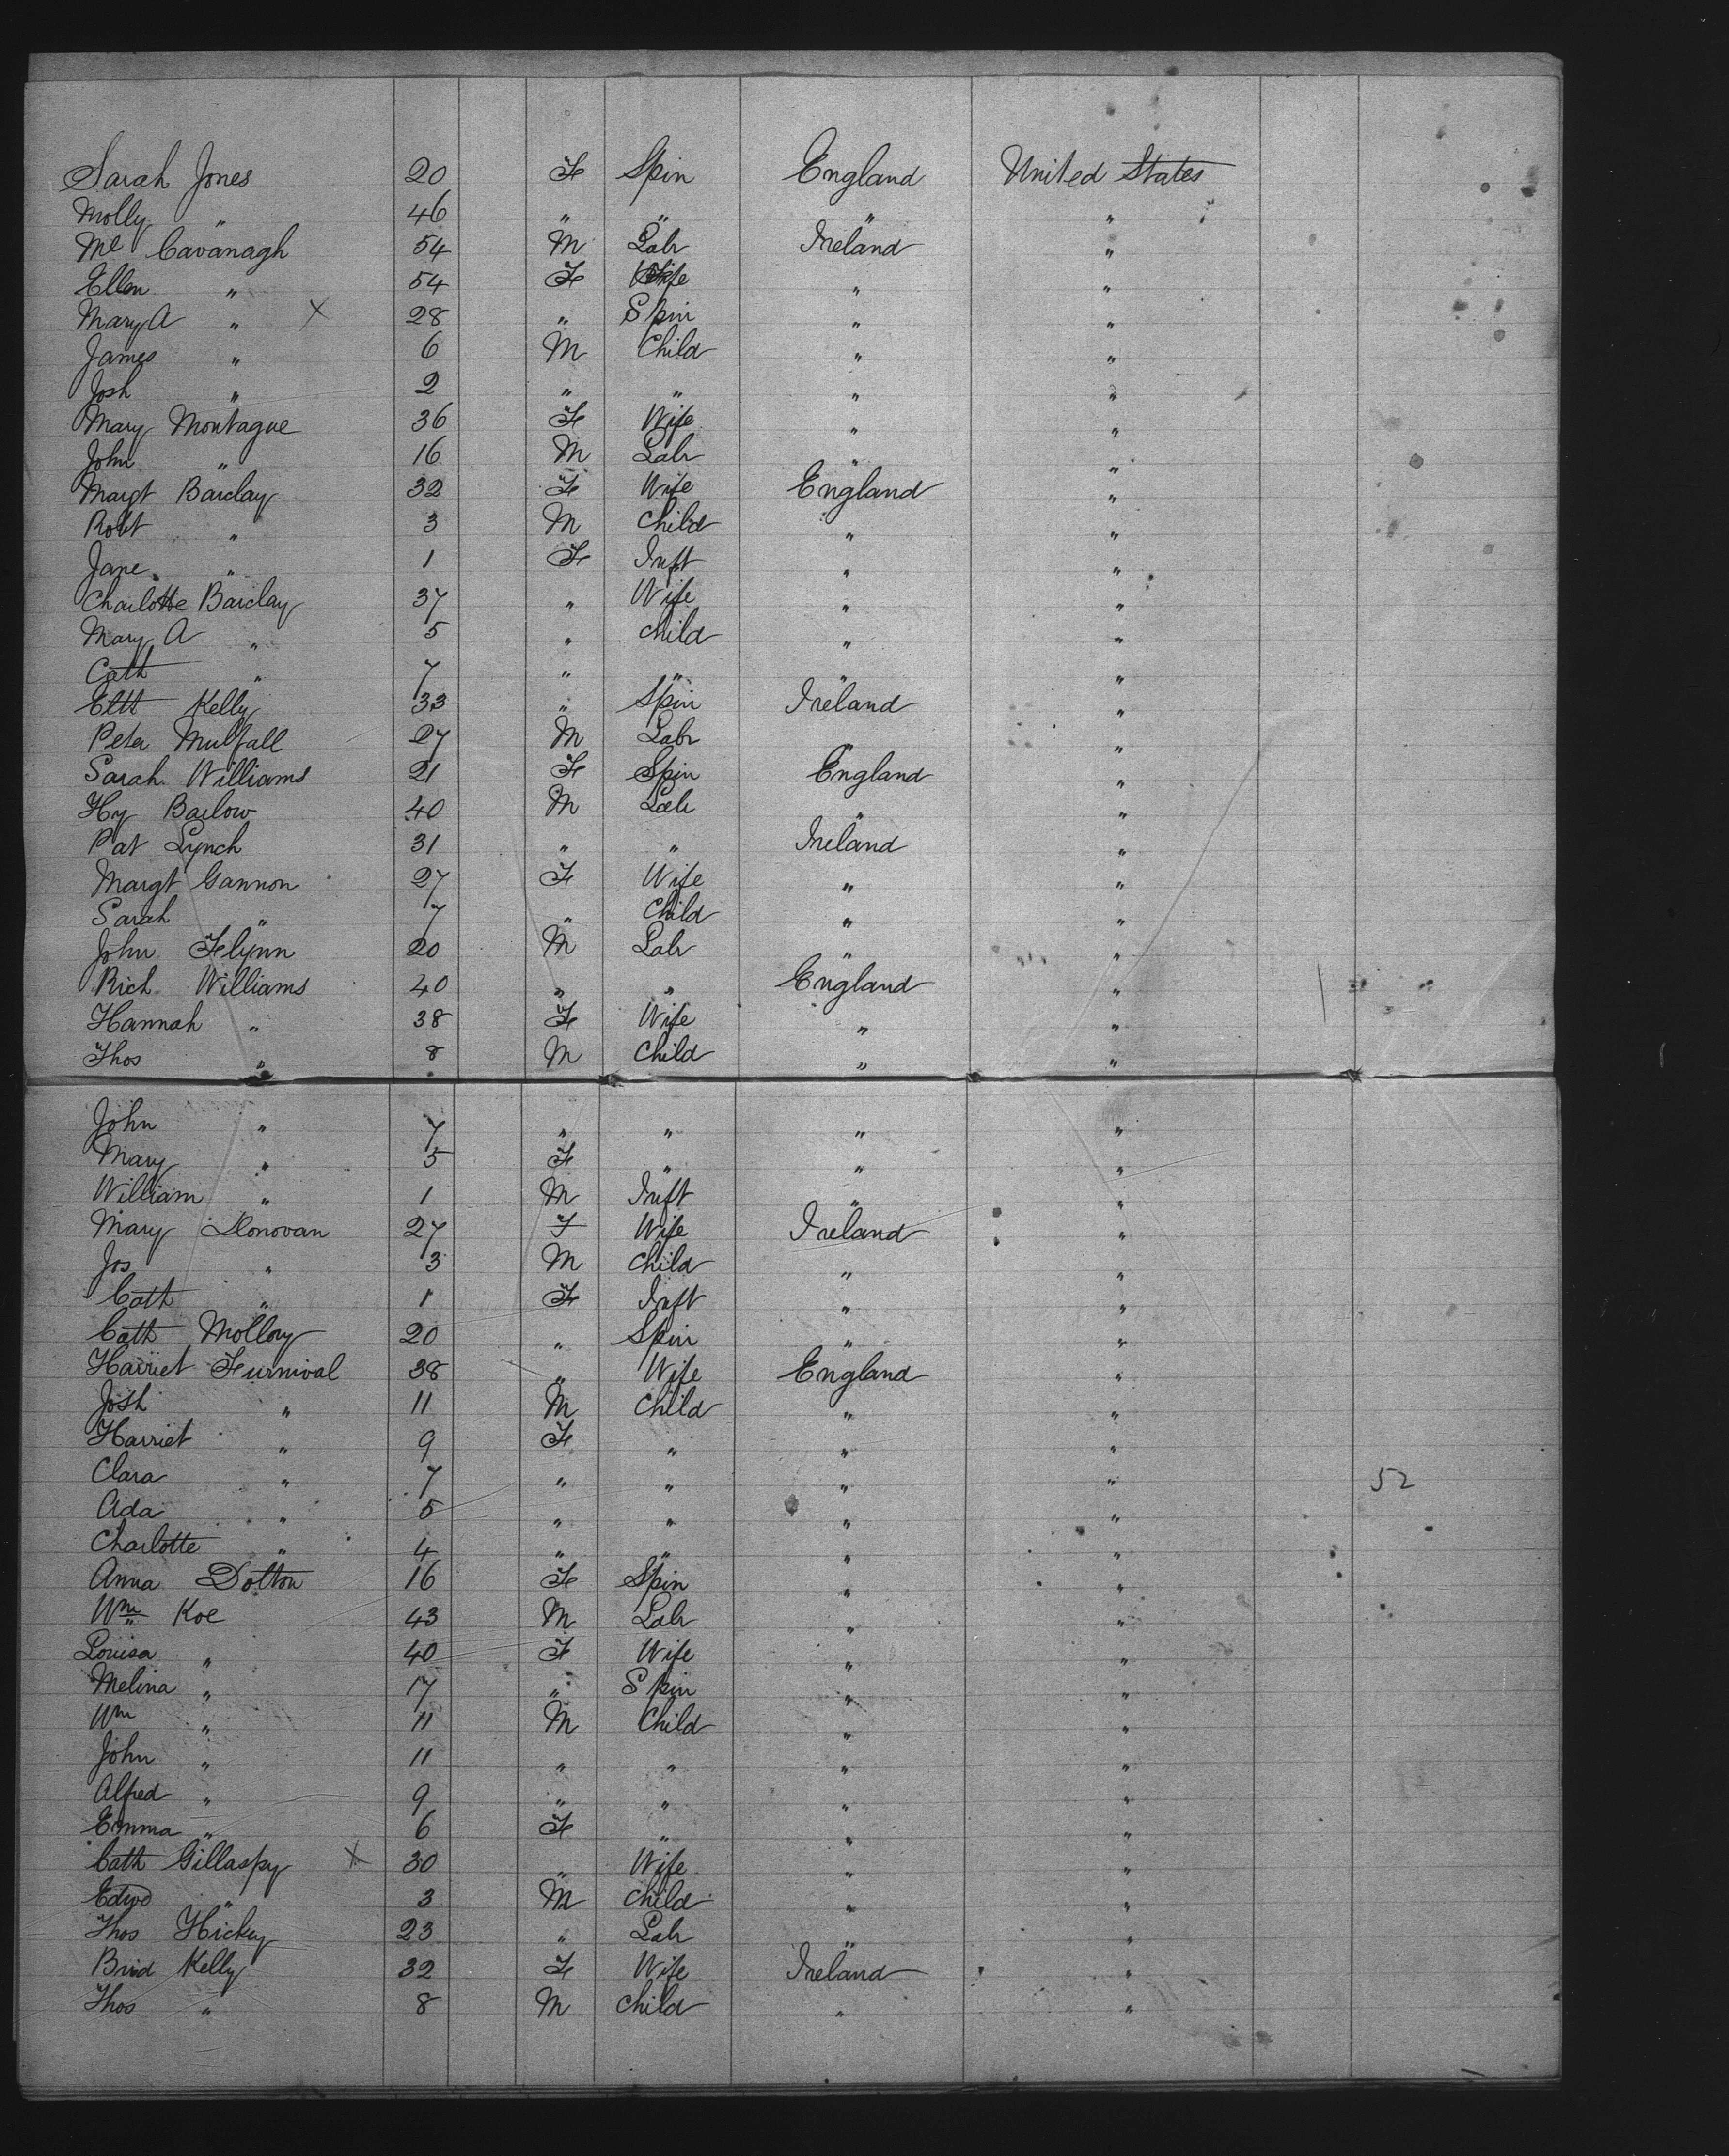 Sarah Jones 20 F Spin England United States
Molly " 46 " " " "
Ml Cavanagh 54 M Labr Ireland "
Ellen " 54 F Wife " "
Mary A " X 28 " Spin " "
James " 6 M Child " "
Josh " 2 " " " "
Mary Montague 36 F Wife " "
John " 16 M Labr " "
Margt Barclay 32 F Wife England "
Robt " 3 M Child " "
Jane " 1 F Inft " "
Charlotte Barclay 37 " Wife " "
Mary A " 5 " Child " "
Cath " 7 " " " "
Elth Kelly 33 " Spin Ireland "
Peter Mulfall 27 M Labr " "
Sarah Williams 21 F Spin England "
Hy Barlow 40 M Labr " "
Pat Lynch 31 " " Ireland "
Margt Gannon 27 F Wife " "
Sarah " 7 " Child " "
John Flynn 20 M Labr " "
Rich Williams 40 " " England "
Hannah " 38 F Wife " "
Thos " 8 M Child " "
John " 7 " " " "
Mary " 5 F " " "
William " 1 M Inft " "
Mary Donovan 27 F Wife Ireland "
Jos " 3 M Child " "
Cath " 1 F Inft " "
Cath Mollory 20 " Spin " "
Harriet Furnival 38 " Wife England "
Josh " 11 M Child " "
Harriet " 9 F " " "
Clara " 7 " " " " 52
Ada " 5 " " " "
Charlotte " 4 " " " "
Anna Dolton 16 F Spin " "
Wm Koe 43 M Labr " "
Louisa " 40 F Wife " "
Melina " 17 " Spin " "
Wm " 11 M Child " "
John " 11 " " " "
Alfred " 9 " " " "
Emma " 6 F " " "
Cath Gillaspy X 30 " Wife " "
Edwd " 3 M Child " "
Thos Hickey 23 " Labr " "
Brid Kelly 32 F Wife Ireland "
Thos " 8 M Child " "